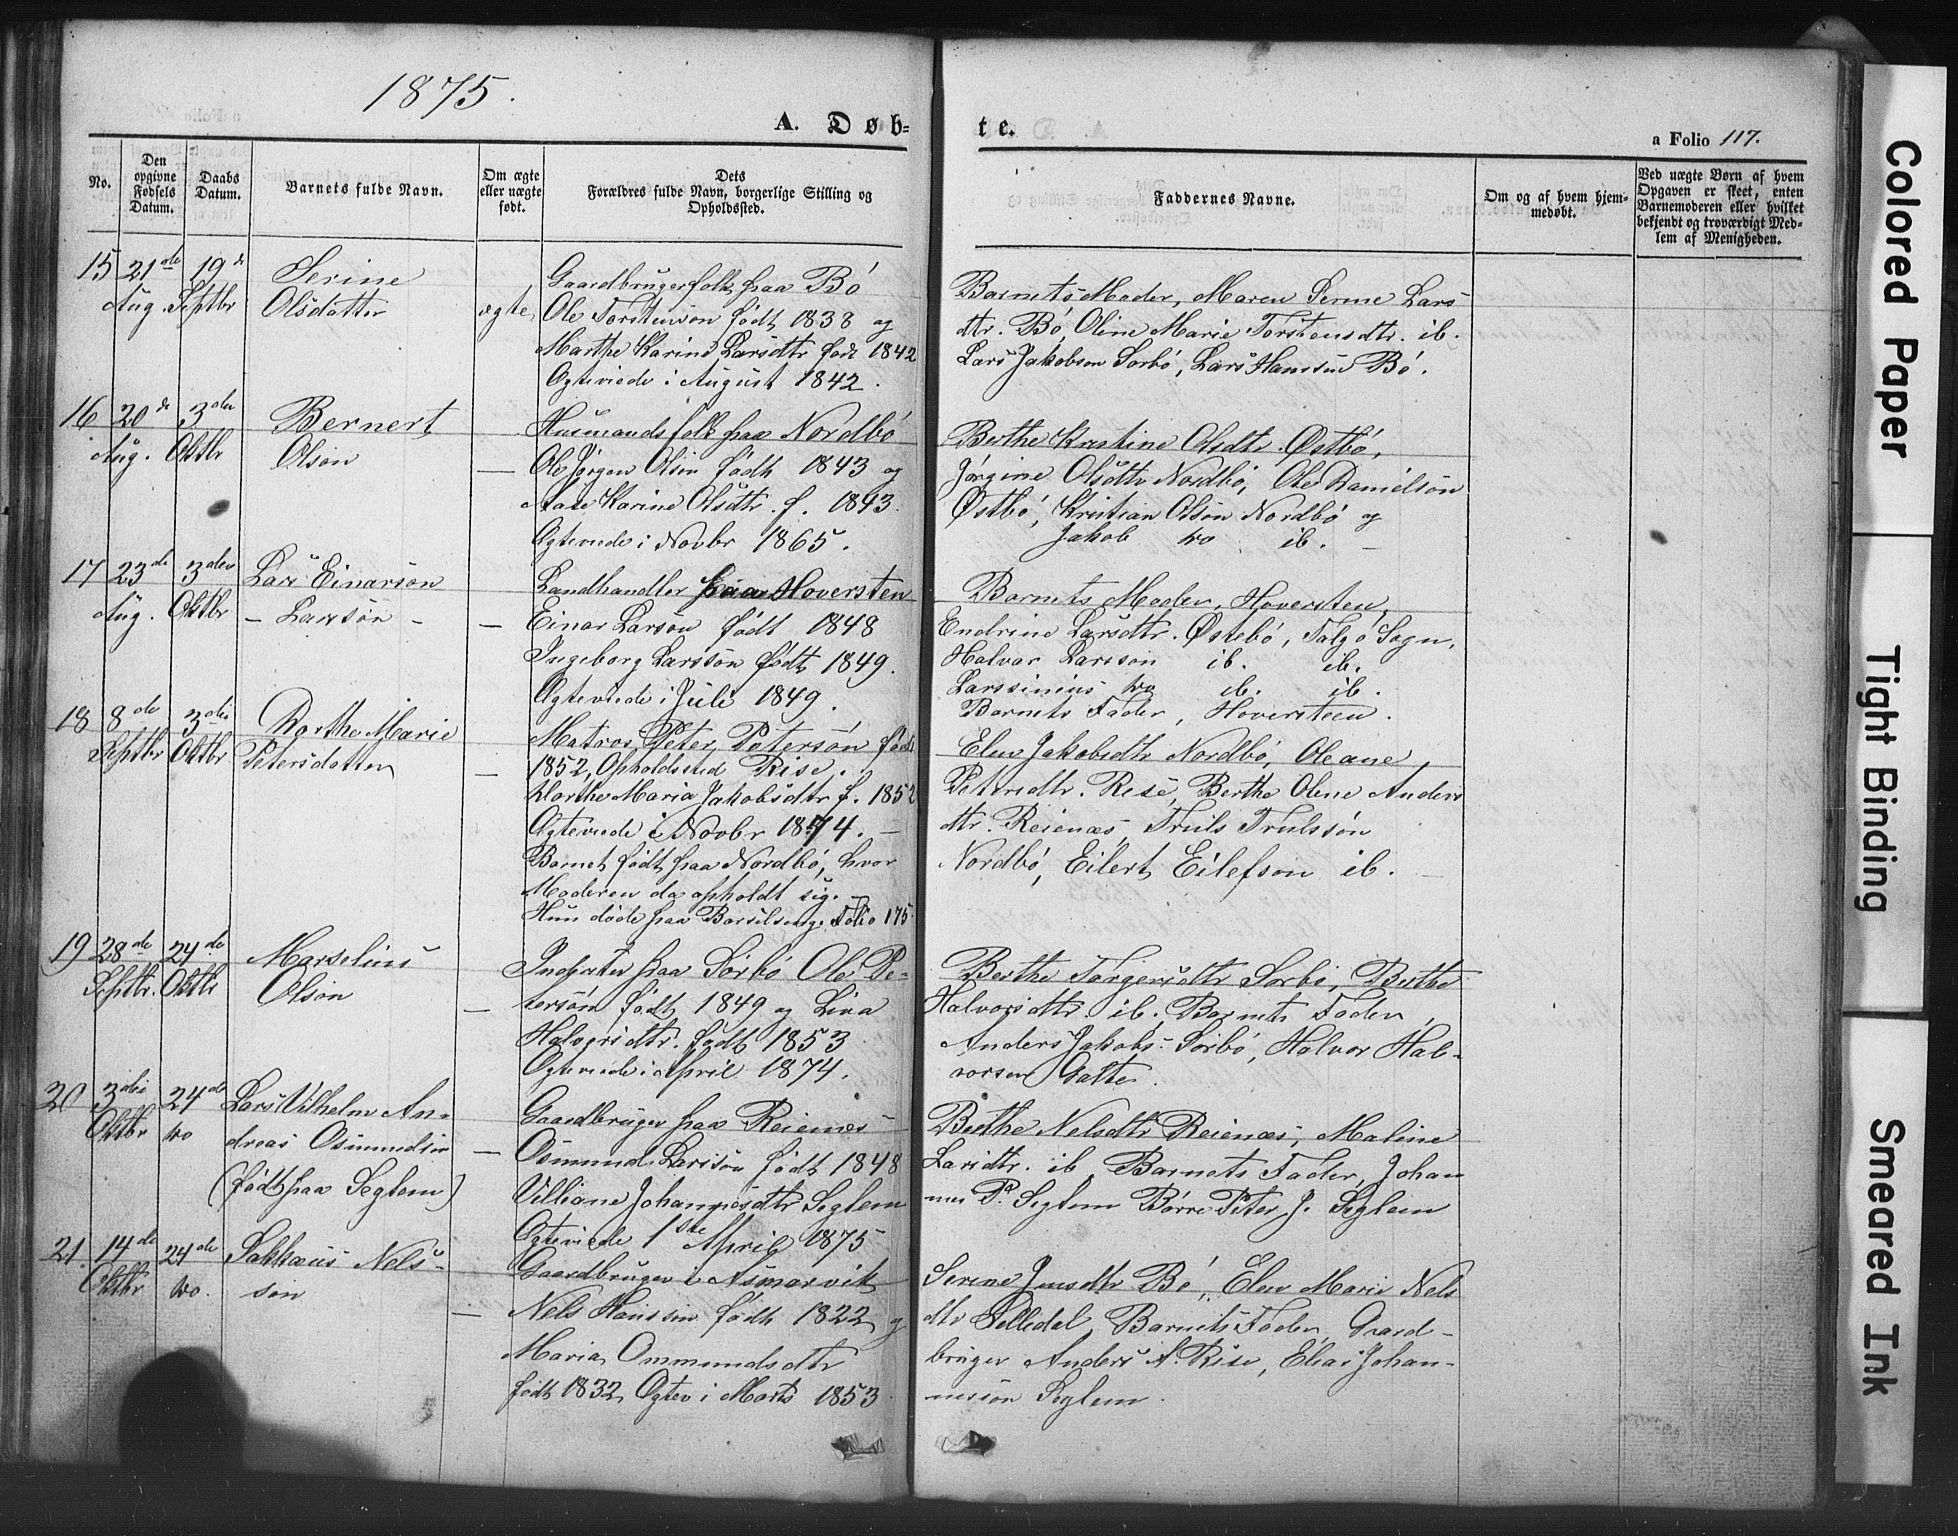 1875.
A. Døb-
te.
a Folio 117.
No.
Den opgivne Fødsels Datum.
Daabs Datum.
Barnets fulde Navn.
Om ægte eller uægte født.
Dets Forældres fulde Navn, borgerlige Stilling og Opholdssted.
Faddernes Navne.
Om og af hvem hjemmedøbt.
Ved uægte Børn af hvem Opgaven er skeet, enten Barnemoderen eller hvilket bekjendt og troværdigt Medlem af Menigheden.
15 21de Aug. 19de Septbr
Serine
Olsdatter
ægte
Gaardbrugerfolk paa Bó
Ole Torstenson født 1838 og
Marthe Karine Larsdtr født 1842
Ægteviede i August 1842.
Barnets Moder, Maren Serine Lars
dtr. Bó, Oline Marie Torstensdtr. ib.
Lars Jakobson Sorbó, Lars Hanssøn Bó.
16 20de Aug. 3die Oktbr
Bernert
Olsøn
—
Husmandsfolk paa Nordbó
Ole Jørgen Olsøn født 1843 og
Aase Karine Olsdtr. f. 1843.
Ægteviede i Novbr 1865.
Berthe Kristine Olsdtr. Østbó,
Jørgine Olsdtr Nordbó, Ole Danielsøn
Østbó, Kristian Olsøn Nordbó og
Jakob do ib. —
17 23de Aug. 3die Oktbr
Lars Einarsøn
- Larsøn -
—
Landhandler paa Hoversten
Einar Larson født 1848
Ingeborg Larssøn født 1849.
Ægteviede i Juli 1849.
Barnets Moder, Hoversten,
Endrine Larsdtr. Østebó, Talgó Sogn,
Halvor Larsson ib. ib.
Larssinius do ib. ib.
Barnets Fader, Hoversteen.
18 8de Septbr 3die Oktbr
Dorthe Marie
Petersdatter
—
Matros Peter Petersøn født
1852, Opholdssted Rise.
Dorthe Maria Jakobsdtr f. 1852
Ægteviede i Novbr 1874. —
Barnet født paa Nordbó, hvor
Moderen da opholdt sig. —
Hun døde paa Barselseng. Folio 175.
Elen Jakobsdtr Nordbó, Oleane
Petersdtr. Rise, Berthe Oline Anders
dtr. Reienæs, Truls Trulssøn
Nordbó, Eilert Eilefson ib. —
19 28de Septbr. 24de Oktbr
Marselius
Olsøn
—
Inderster paa Sórbó Ole Pe-
tersøn født 1849 og Lina
Halvorsdtr. født 1853
Ægteviede i April 1874.
Berthe Torgersdtr Sorbó, Berthe
Halvorsdtr. ib. Barnets Fader,
Anders Jakobs- Sórbó, Halvor Hal-
vorsen Galte.
20 3die Oktbr 24de do
Lars Vilhelm An-
dreas Osmundsøn
(født paa Seglem)
—
Gaardbruger paa Reienæs
Osmund Larssøn født 1848
Villiane Johannesdtr Seglem
Ægteviede 1ste April 1875
Berthe Nelsdtr Reienæs, Maline
Larsdtr. ib, Barnets Fader, Johan
nes P. Seglem Børre Peter J. Seglem
21. 14de Oktbr 24de do.
Sakkæus Nels-
søn
—
Gaardbruger i Asmarvik
Nels Hanssøn født 1822 og
Maria Ommundsdtr
født 1832, Ægtev i Marts 1853
Serine Jensdtr Bó, Elen Marie Nels
dtr Selledal, Barnets Fader, Gaard-
bruger Anders A. Rise, Elias Johan-
nessøn Seglem.
Colored Paper
Tight Binding
Smeared Ink